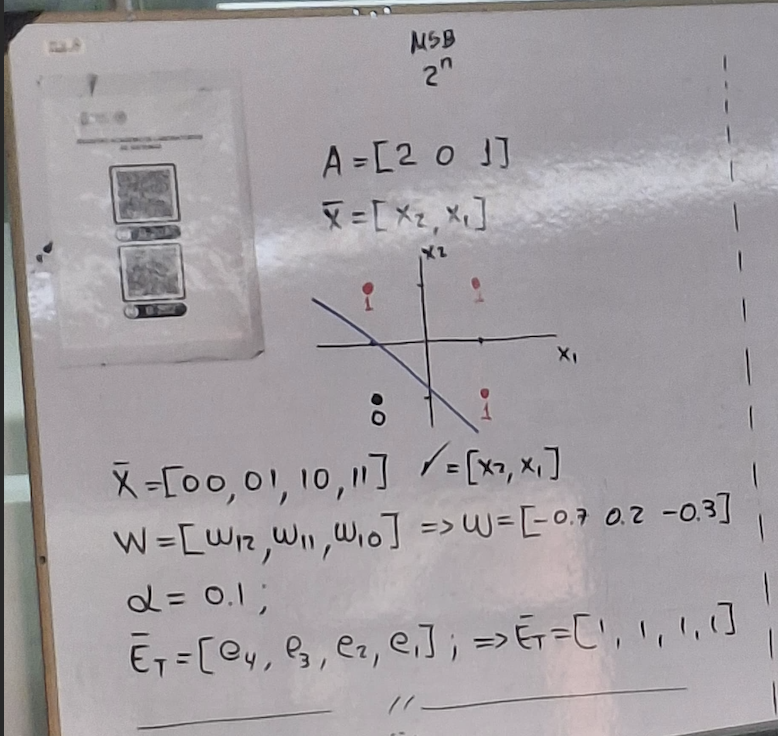 MSB
2ⁿ
A = [2 0 1]
X̄ = [x₂, x₁]
x₂
1 1
x₁
0 1
X̄ = [00, 01, 10, 11] ✓ = [x₂, x₁]
W = [W₁₂, W₁₁, W₁₀] => W = [-0.7 0.2 -0.3]
α = 0.1 ;
Ē_T = [e₄, e₃, e₂, e₁] ; => Ē_T = [1, 1, 1, 1]
//